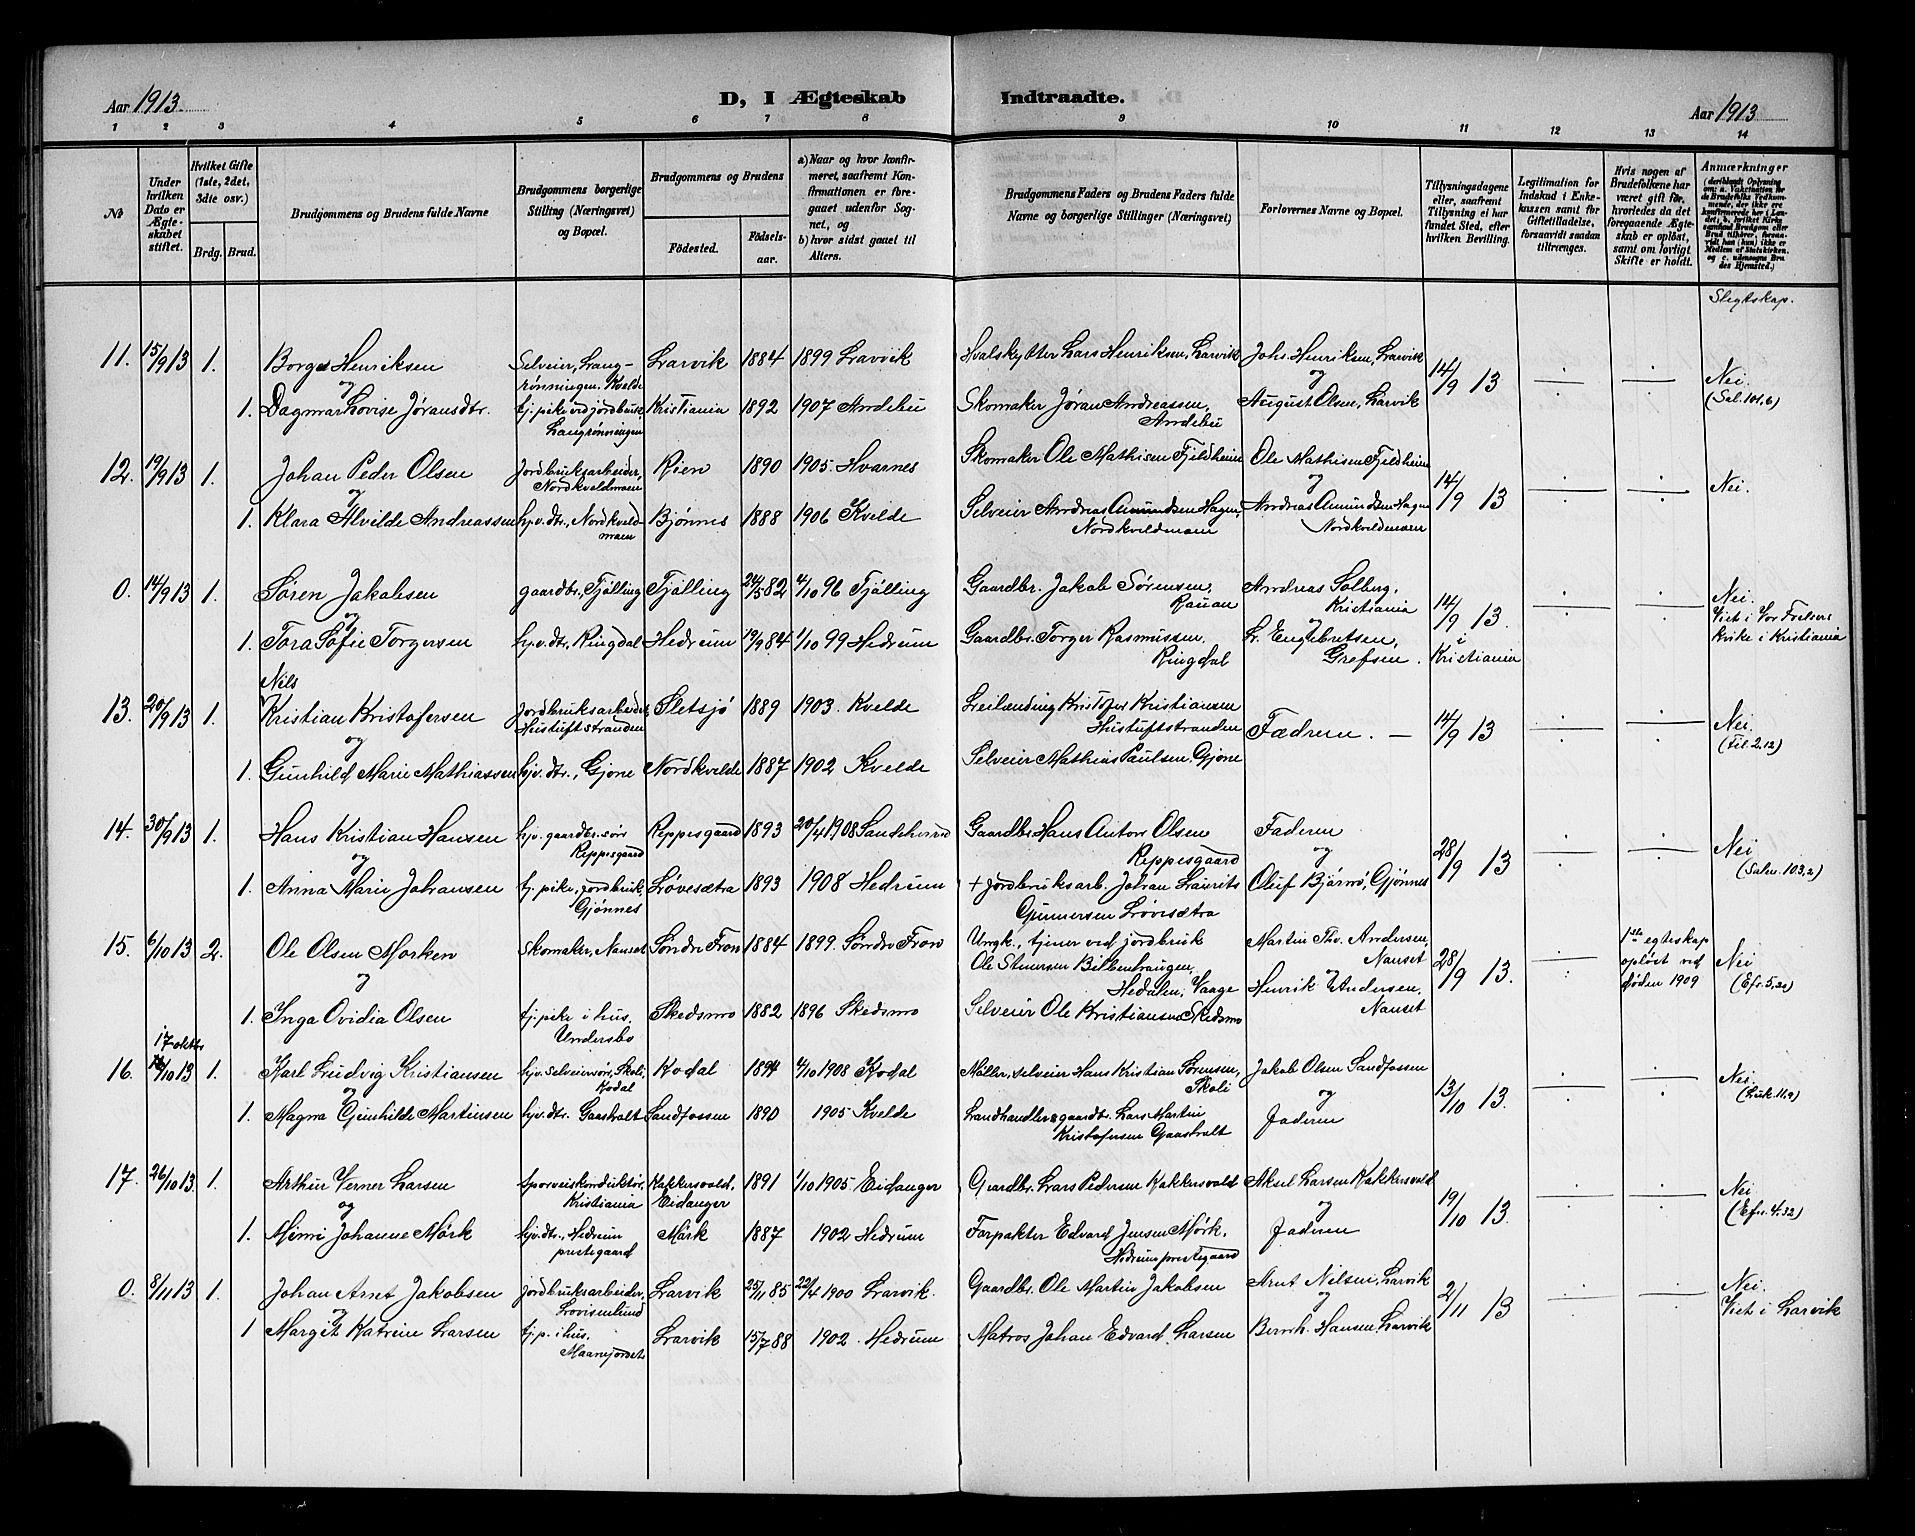 Aar 1913. D, I Ægteskab Indtraadte. Aar 1913
1 2 3 4 5 6 7 8 9 10 11 12 13 14
No
Under hvilken Dato er Ægteskabet stiftet.
Hvilket Gifte (1ste, 2det, 3die osv.)
Brdg. Brud.
Brudgommens og Brudens fulde Navne
Brudgommens borgerlige Stilling (Næringsvei) og Bopæl.
Brudgommens og Brudens
Födested. Födselsaar.
a) Naar og hvor konfirmeret, saafremt Konfirmationen er foregaaet udenfor Sognet, og
b) hvor sidst gaaet til Alters.
Brudgommens Faders og Brudens Faders fulde Navne og borgerlige Stillinger (Næringsvei)
Forlovernes Navne og Bopæl.
Tillysningsdagene eller, saafremt Tillysning ei har fundet Sted, efter hvilken Bevilling.
Legitimation for Indskud i Enkekassen samt for Giftetilladelse, forsaavidt saadan tiltrænges.
Hvis nogen af Brudefolkene har været gift før, hvorledes da det foregaaende Ægteskab er opløst, samt om lovligt Skifte er holdt.
Anmærkninger
(deriblandt Oplysning om: a. Vaksination for de Brudefolks Vedkommende, der ikke ere konfirmerede her i Landet, b. hvilket Kirkesamfund Brudgom eller Brud tilhører, forsaavidt han (hun) ikke er Medlem af Statskirken, og c. udensogns Brudes Hjemsted.)
Slegtskap.
11. 15/9 13 1. Borge Henriksen Selveier, Langrønningen, Kvelde Larvik 1884 1899 Larvik Hvalskytter Lars Henriksen, Larvik Johs. Henriksen, Larvik 14/9 13 Nei.
og
1. Dagmar Lovise Jøransdtr. tj. pike ved jordbruk Langrønningen Kristiania 1892 1907 Andebu Skomaker Jøran Andreassen, Andebu August Olsen, Larvik (Sal. 101,6)
12. 19/9 13 1. Johan Peder Olsen Jordbruksarbeider, Nordkveldmoen Rien 1890 1905. Hvarnes Skomaker Ole Mathisen Fjeldheim Ole Mathisen Fjeldheim 14/9 13 Nei.
og
1. Klara Alvilde Andreassen hjv. dtr., Nordkveldmoen Bjönnes 1888 1906 Kvelde Selveier Andreas Amundsen Hagen, Nordkveldmoen Andreas Amundsen Hagen Nordkveldmoen
0. 14/9 13 1. Søren Jakobsen gaardbr., Tjølling Tjølling 24/5 82 4/10 96 Tjølling Gaardbr. Jakob Sørensen, Rauan Andreas Solberg, Kristiania 14/9 13. Nei.
og
1. Tora Sofie Torgersen hjv. dtr., Ringdal Hedrum 19/9 84 1/10 99 Hedrum Gaardbr. Torger Rasmussen, Ringdal L. Engebretsen, Grefsen. i Kristiania Viet i Vor Frelsers kirke i Kristiania
13. 20/9 13 1. Nils Kristian Kristofersen Jordbruksarbeider, Hustuftstranden Sletsjö 1889 1903. Kvelde Leilænding Kristofer Kristiansen Hustuftstranden Fædrene. — 14/9 13 Nei.
og
1. Gunhild Marie Mathiassen hjv. dtr., Gjone Nordkvelde 1887 1902 Kvelde Selveier Mathias Paulsen, Gjone (Fil. 2,12)
14. 30/9 13 1. Hans Kristian Hansen hjv. gaardbr. sön Reppesgaard Reppesgaard 1893 20/4 1908 Sandeherred Gaardbr. Hans Anton Olsen Reppesgaard Faderen 28/9 13 Nei
og
1. Anna Marie Johansen tj. pike, jordbruk, Gjönnes Lövesætra 1893 1908 Hedrum + jordbruksarb. Johan Laurits Gunnersen Lövesætra Oluf Bjårnö, Gjönnes (Salm. 103,2)
15. 6/10 13 2. Ole Olsen Morken Skomaker, Nanset Søndre Fron 1884 1899. Søndre Fron Ungk., tjener ved jordbruk Ole Stenersen Hedalen, Vaage Martin Thv. Andersen, Nanset 28/9 13. 1ste egteskap opløst ved døden 1909 Nei
og
1. Inga Ovidia Olsen tj. pike i hus, Undersbo Skedsmo 1882 1896 Skedsmo Selveier Ole Kristiansen Skedsmo Henrik Andersen, Nanset (Efs. 5,20)
17 oktbr
16. /10 13 1. Karl Ludvig Kristiansen hjv. selveiersön, Skoli, Kodal Kodal 1894 4/10 1908 Kodal Möller, selveier Hans Kristian Sørensen, Skoli Jakob Olsen Sandfossen 13/10 13. Nei.
og
1. Magna Gunhilde Martinsen hjv. dtr. Gaasholt Sandfossen 1890 1905. Kvelde Landhandler & gaardbr. Lars Martin Kristofersen Gaasholt Faderen (Luk. 11,9)
17. 26/10 13 1. Arthur Verner Larsen Sporveiskonduktör, Kristiania Kakkersvold, Eidanger 1891 1/10 1905 Eidanger Gaardbr. Lars Pedersen Kakkersvold Aksel Larsen Kakkersvold 19/10 13. Nei
og
1. Mimi Johanne Mørk hjv. dtr., Hedrum prestegaard Mörk 1887 1902 Hedrum Forpakter Edvard Jensen Mørk, Hedrum prestegaard Faderen (Efs. 4,32)
0. 8/11 13 1. Johan Arnt Jakobsen Jordbruksarbeider, Lovisenlund Larvik 25/11 85 22/4 1900 Larvik. Gaardbr. Ole Martin Jakobsen Arnt Nilsen, Larvik 2/11 13 Nei.
og
1 Margit Katrine Larsen tj. p. i hus, Maanejordet Larvik 15/7 88 1902. Hedrum Matros Johan Edvard Larsen Bernh. Hansen, Larvik Viet i Larvik